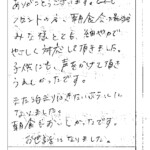 ありがとうございました。
フロントの方、朝食会の
みな様とても、細やかで
やさしく対応して頂きました。
子供にも、声をかけて頂き
うれしかったです。
また泊まりに行きたいホテルに
なりました。
朝食もおいしかったです。
お世話になりました。